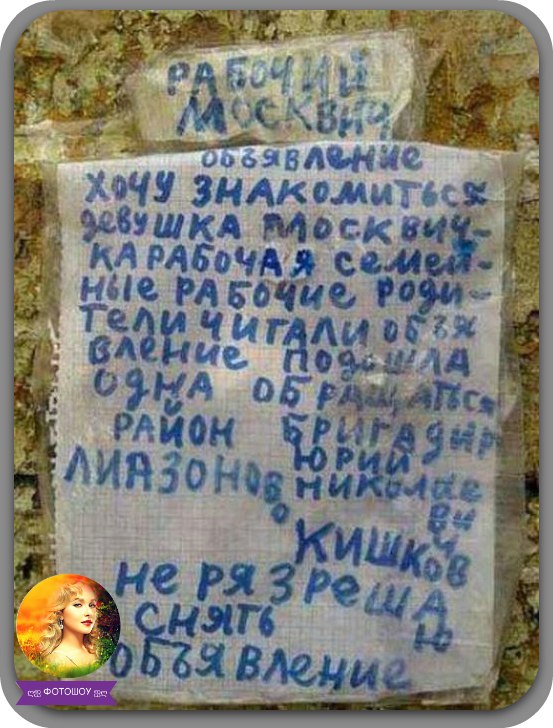 РАБОЧИЙ
МОСКВИЧ
ОБЪЯВЛЕНИЕ
ХОЧУ ЗНАКОМИТЬСЯ
ДЕВУШКА МОСКВИЧ-
КА РАБОЧАЯ СЕМЕЙ-
НЫЕ РАБОЧИЕ РОДИ-
ТЕЛИ ЧИТАЛИ ОБЪЯ
ВЛЕНИЕ ПОДОШЛА
ОДНА ОБРАЩАТЬСЯ
РАЙОН БРИГАДИР
ЛИАЗОНОВО ЮРИЙ
НИКОЛАЕ
ВИ
Ч
КИШКОВ
НЕ РЯЗРЕША
Ю
СНЯТЬ
ОБЪЯВЛЕНИЕ
ФОТОШОУ